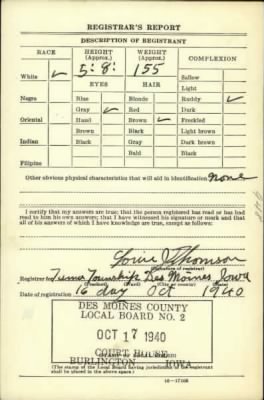 REGISTRAR'S REPORT
DESCRIPTION OF REGISTRANT
RACE HEIGHT (Approx.) WEIGHT (Approx.) COMPLEXION
White ✓ 5:8: 155 Sallow
EYES HAIR Light
Negro Blue Blonde Ruddy ✓
Gray ✓ Red Dark
Oriental Hazel Brown ✓ Freckled
Brown Black Light brown
Indian Black Gray Dark brown
Bald Black
Filipino
Other obvious physical characteristics that will aid in identification None
I certify that my answers are true; that the person registered has read or has had
read to him his own answers; that I have witnessed his signature or mark and that
all of his answers of which I have knowledge are true, except as follows:
Thomson
(Signature of registrar)
Registrar for Township Des Moines Iowa
Date of registration 16 day Oct 1940
DES MOINES COUNTY
LOCAL BOARD No. 2
OCT 17 1940
COURT HOUSE
BURLINGTON IOWA
(The stamp of the Local Board having jurisdiction of the registrant
shall be placed in the above space.)